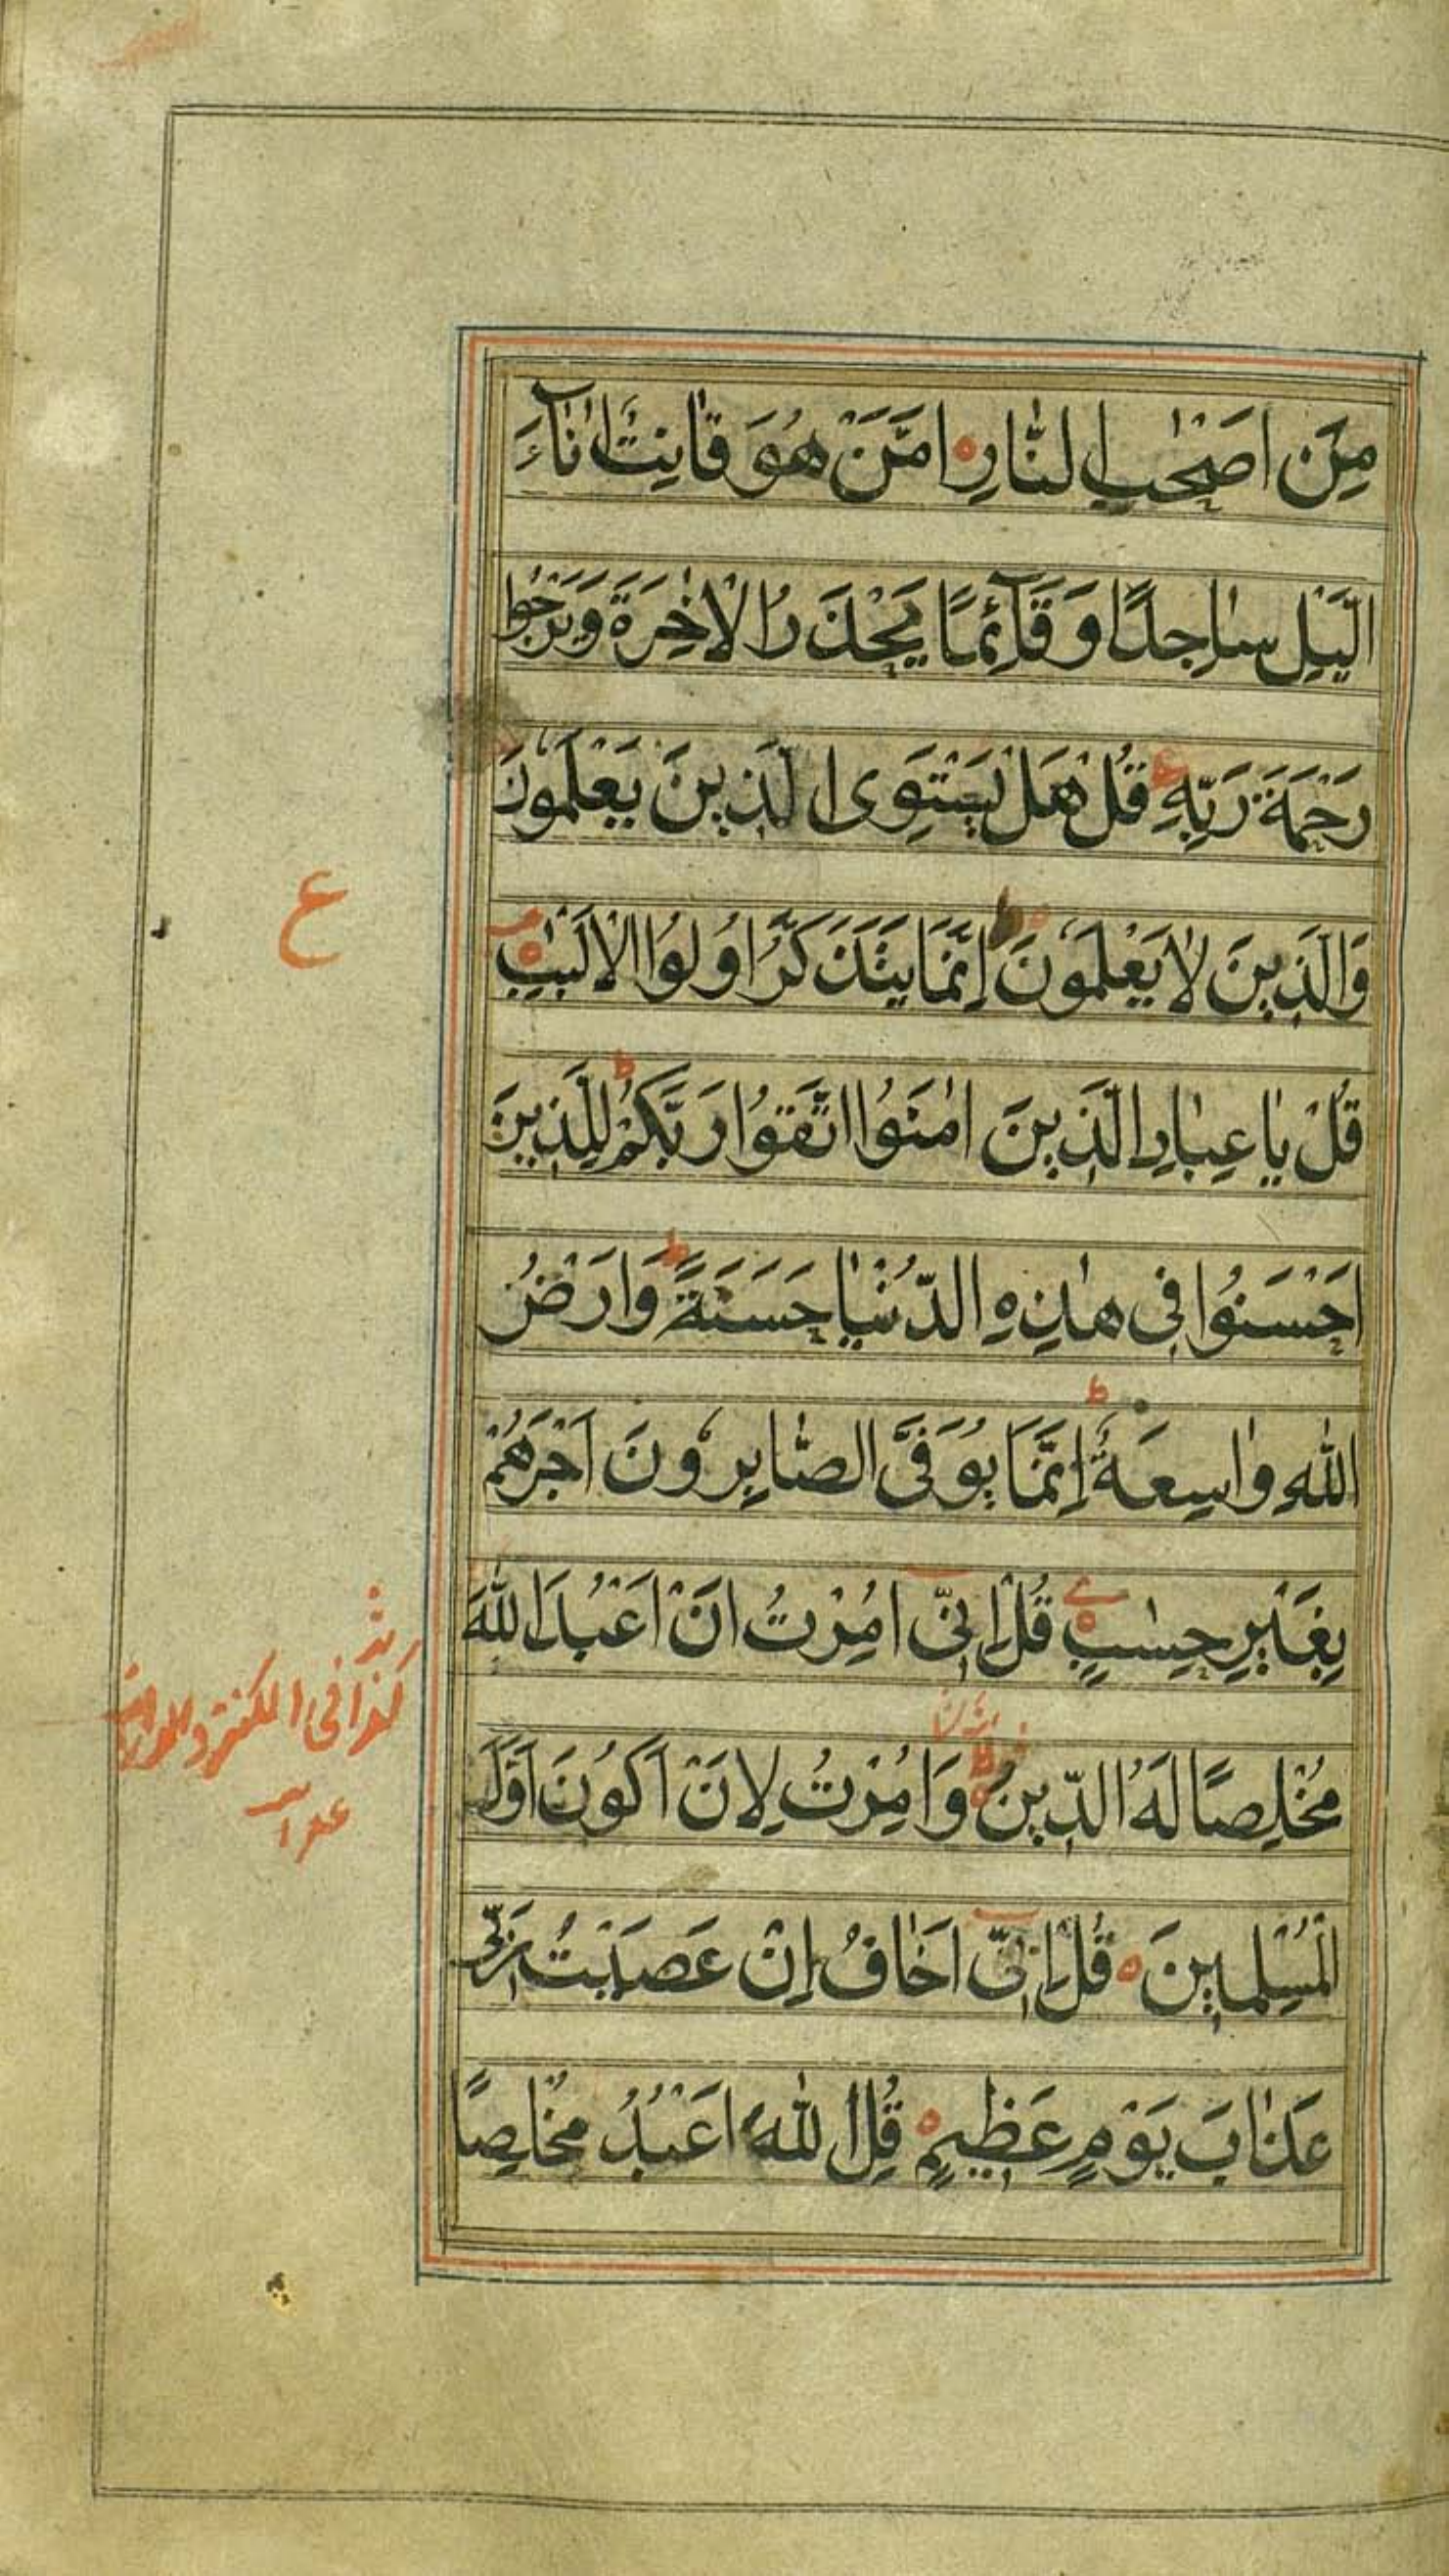 مِنْ اَصْحٰبِ النَّارِ اَمَّنْ هُوَ قَانِتٌ اٰنَآءَ
الَّيْلِ سَاجِدًا وَقَآئِمًا يَحْذَرُ الْاٰخِرَةَ وَيَرْجُوا
رَحْمَةَ رَبِّهِ قُلْ هَلْ يَسْتَوِى الَّذِينَ يَعْلَمُونَ
وَالَّذِينَ لَا يَعْلَمُونَ اِنَّمَا يَتَذَكَّرُ اُولُوا الْاَلْبٰبِ
ع
قُلْ يَا عِبَادِ الَّذِينَ اٰمَنُوا اتَّقُوا رَبَّكُمْ لِلَّذِينَ
اَحْسَنُوا فِى هٰذِهِ الدُّنْيَا حَسَنَةٌ وَاَرْضُ
اللّٰهِ وَاسِعَةٌ اِنَّمَا يُوَفَّى الصَّابِرُونَ اَجْرَهُمْ
بِغَيْرِ حِسٰبٍ قُلْ اِنِّى اُمِرْتُ اَنْ اَعْبُدَ اللّٰهَ
مُخْلِصًا لَهُ الدِّينَ وَاُمِرْتُ لِاَنْ اَكُونَ اَوَّلَ
الْمُسْلِمِينَ قُلْ اِنِّى اَخَافُ اِنْ عَصَيْتُ رَبِّى
عَذَابَ يَوْمٍ عَظِيمٍ قُلِ اللّٰهَ اَعْبُدُ مُخْلِصًا